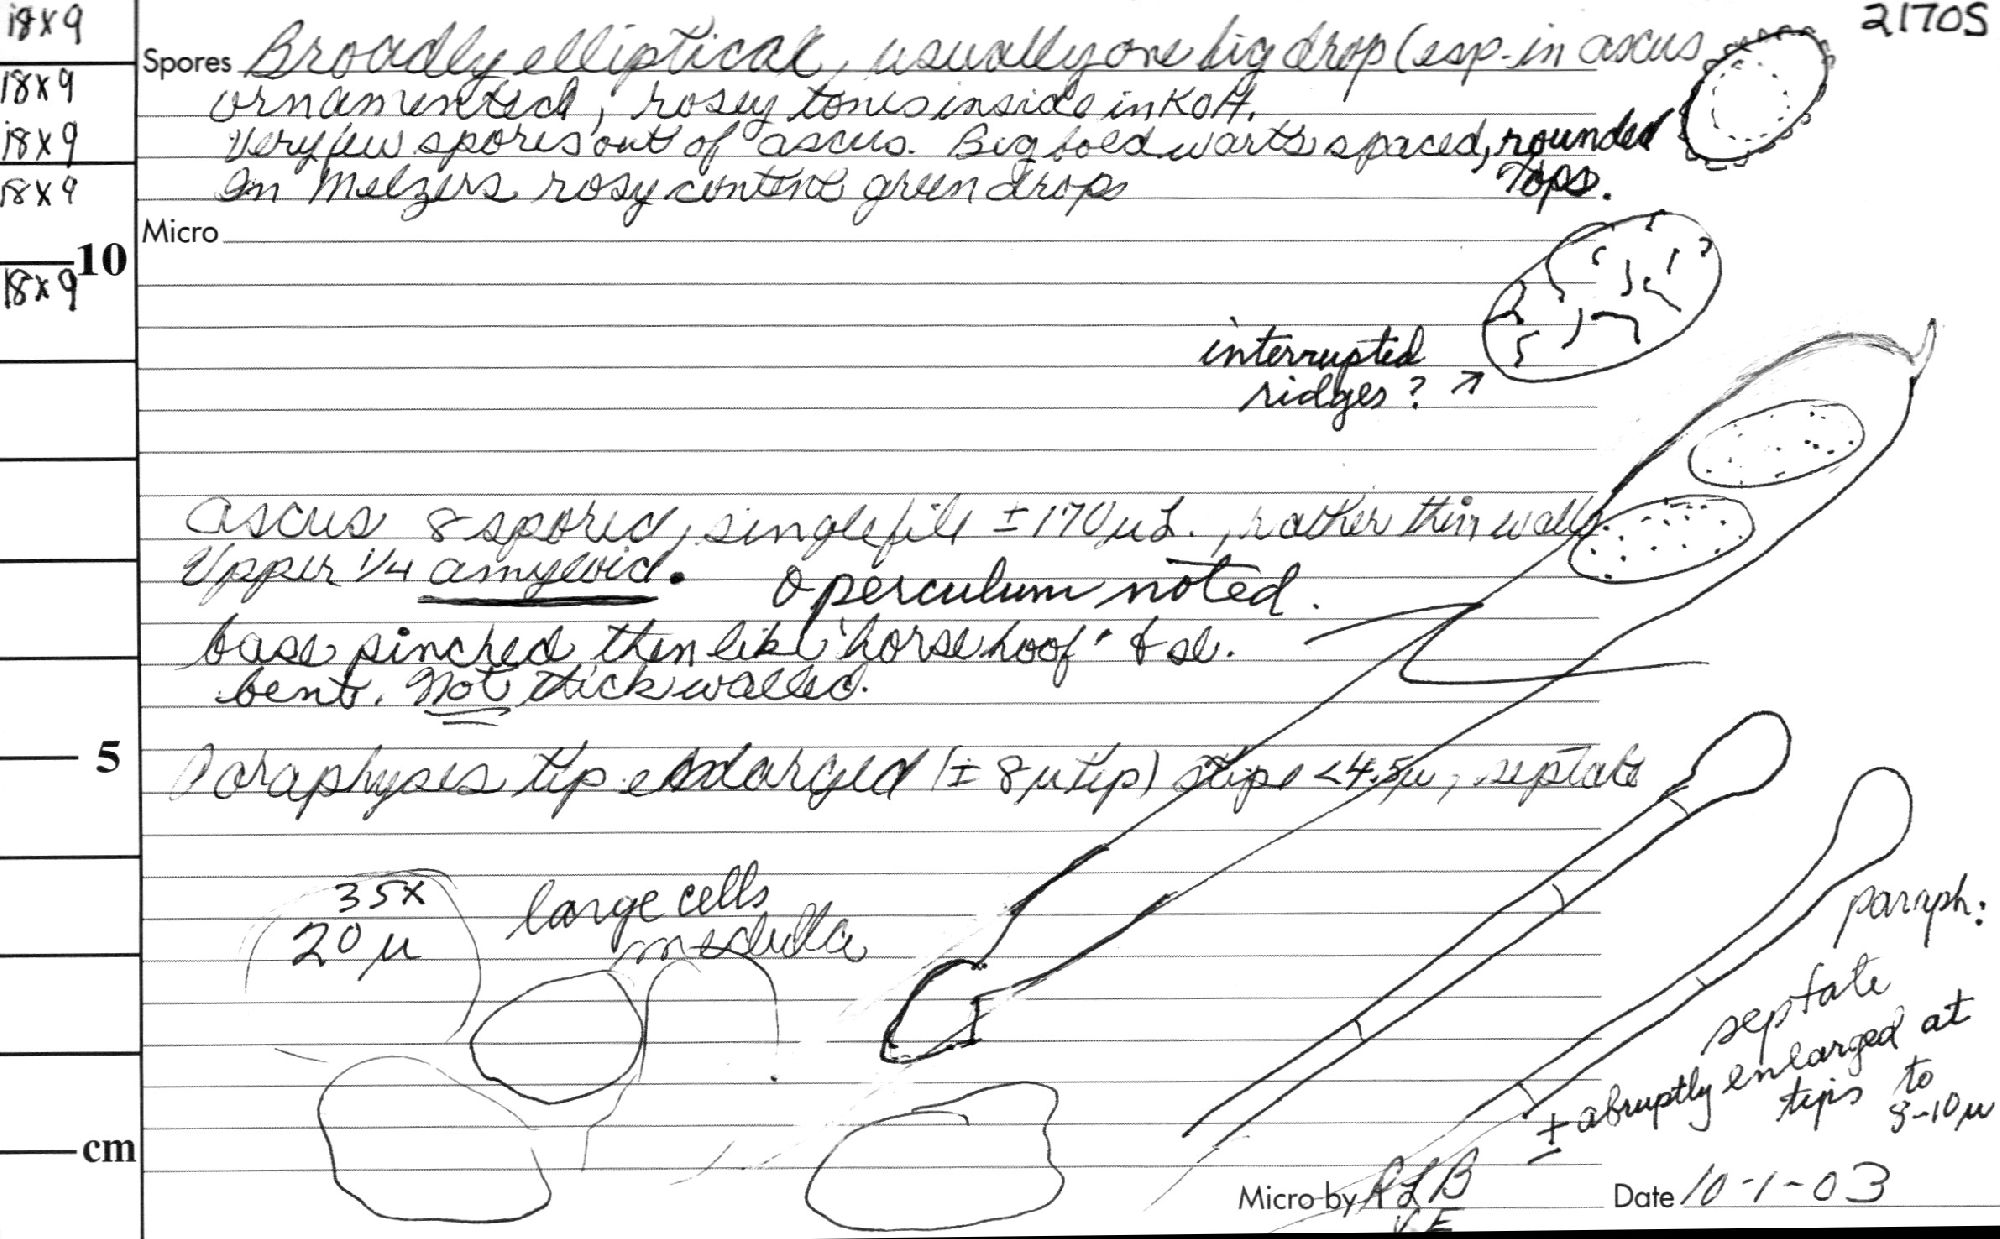 18x9
18x9
18x9
18x9
18x9
10
5
cm
21705
Spores Broadly elliptical, usually one big drop (esp. in ascus
ornamented, rosey tones inside in KOH.
Very few spores out of ascus. Big bold warts spaced, rounded
tops.
In Melzers rosy content green drops
Micro
interrupted
ridges? ↗
ascus 8 spored, single file ±170µ L., rather thin walls.
Upper 1/4 amyloid. Operculum noted.
base pinched then like "horse hoof" & sl.
bent. Not thick walled.
Paraphyses tip enlarged (± 8µ tip) stipe <4.5µ, septate
35x
20µ
large cells
medulla
paraph:
septate
± abruptly enlarged at
tips to
8-10µ
Micro by RLB
V.E
Date 10-1-03